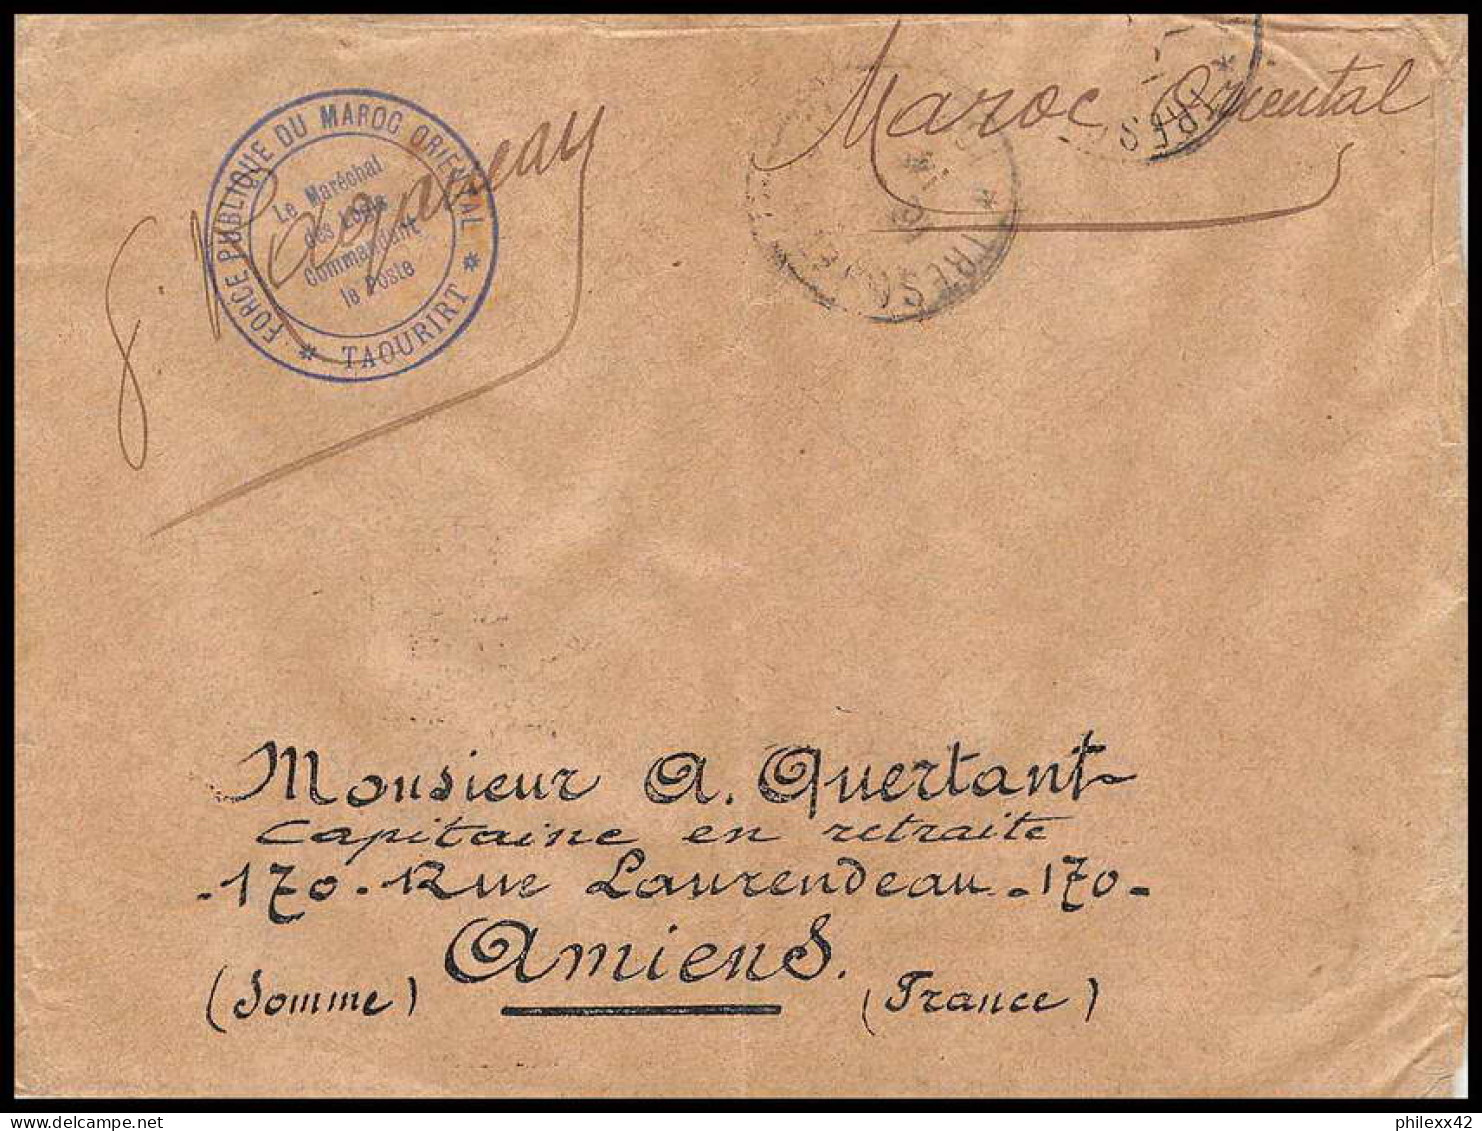 FORCE PUBLIQUE DU MAROC ORIENTAL
* TAOURIRT *
Le Maréchal
des Logis
Commandant
le Poste
Maroc Oriental
* TRESOR
* TRES
Monsieur A. Quertant
Capitaine en retraite
-170-Rue Laurendeau-170-
Amiens.
(Somme)
(France)
philexx42